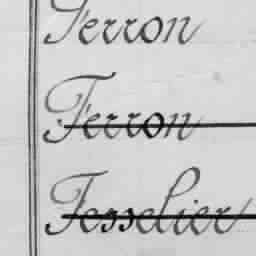 Ferron
Ferron
Fesselier